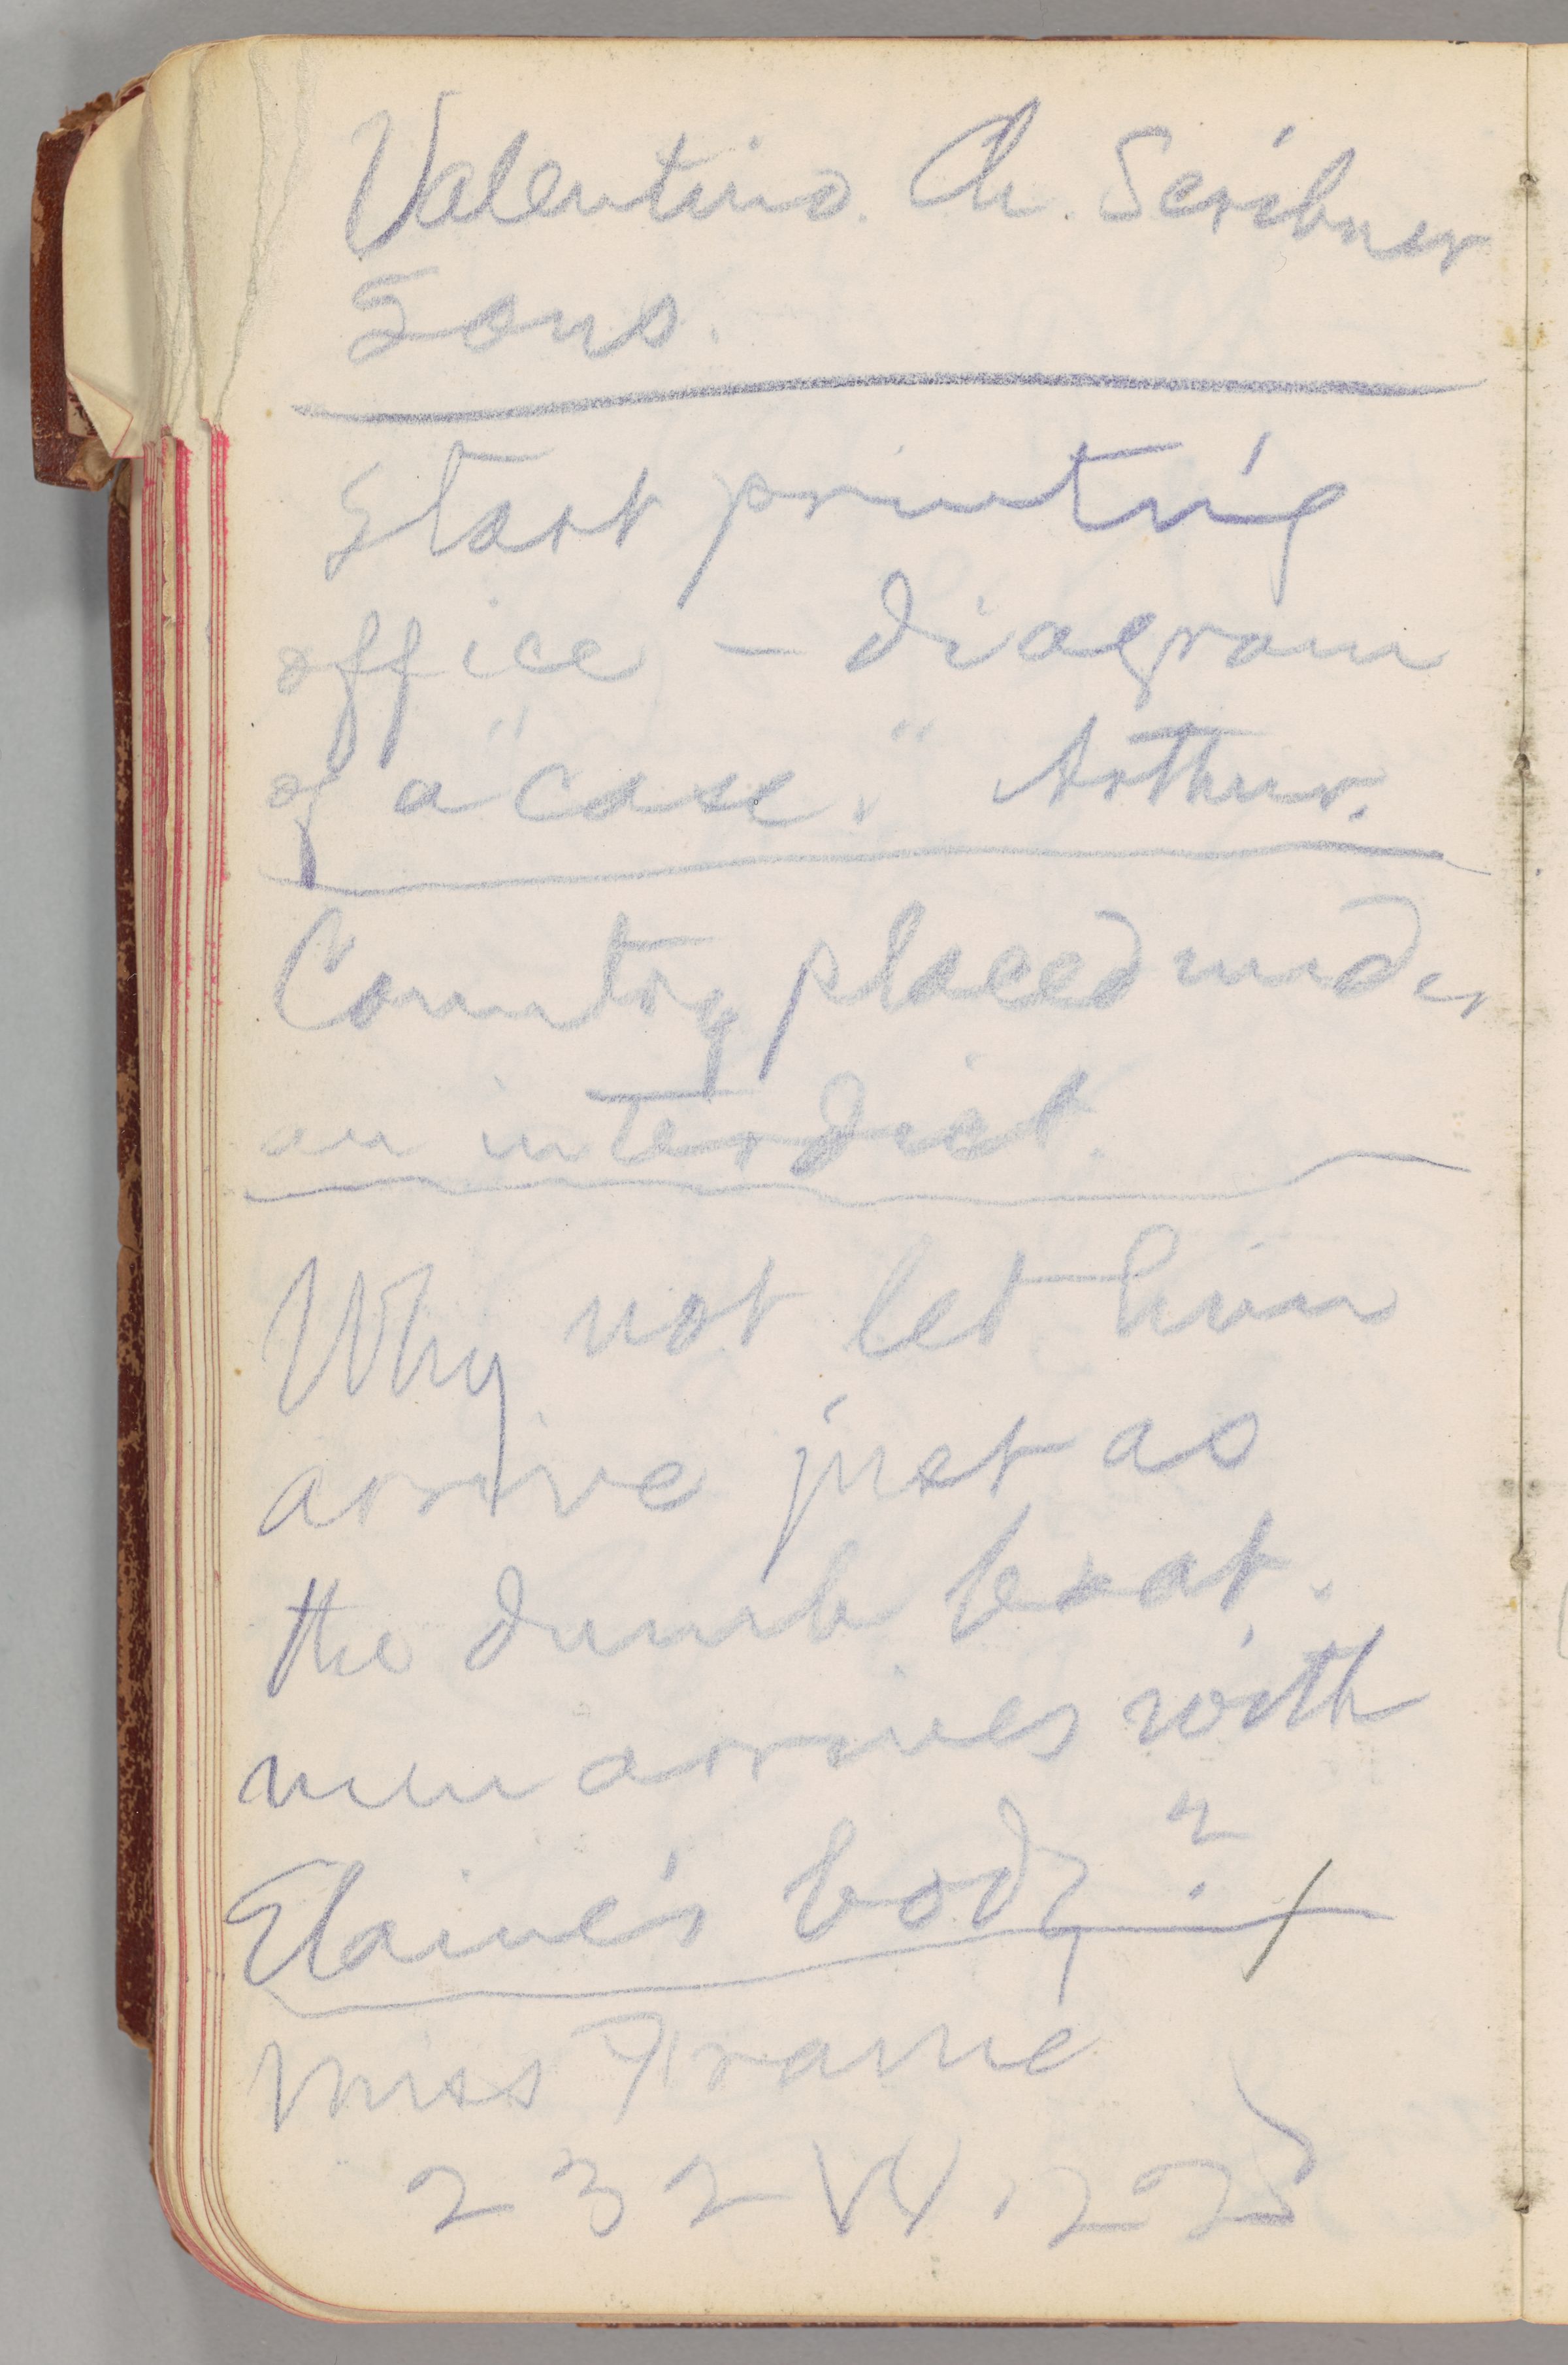 Valentino. Ch. Scribner
Sons.
Start printing
office — diagram
of a "case." Arthur.
Country placed under
an interdict.
Why not let him
arrive just as
the dumb boat.
man arrives with
Elaine's body?
Miss Frame
232 W. 22